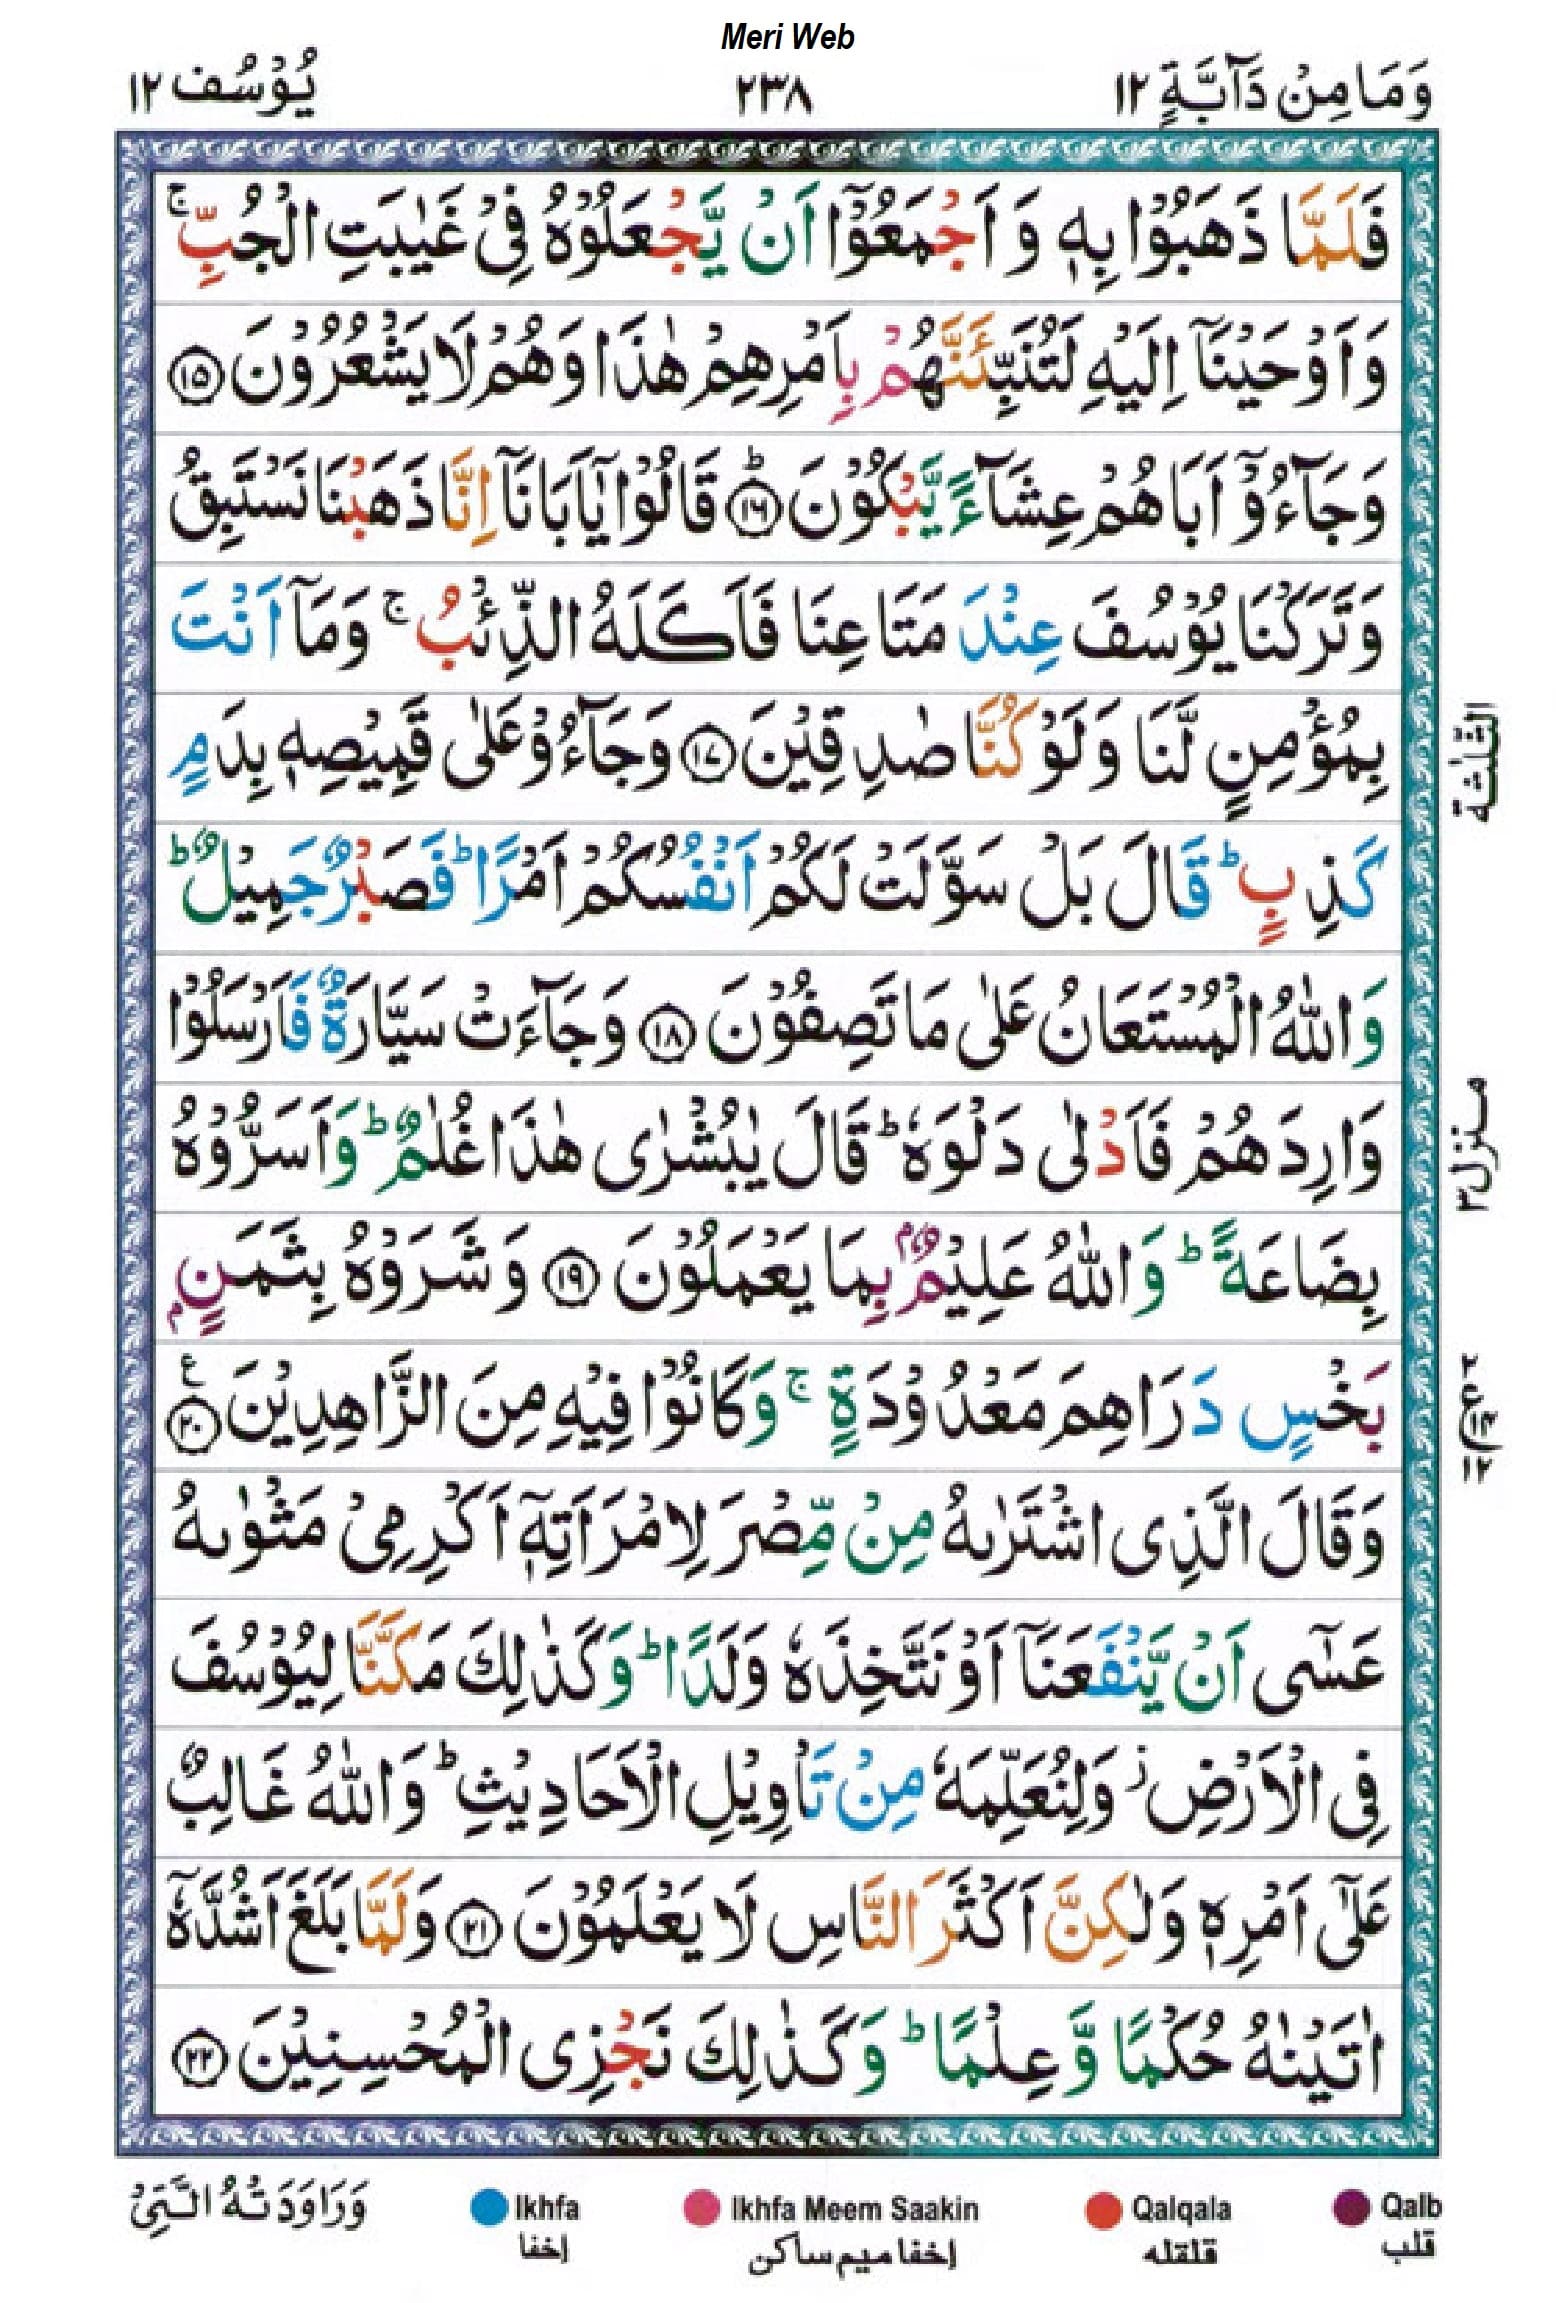 Meri Web
وَمَا مِنْ دَآبَّةٍ ١٢
٢٣٨
يُوْسُف ١٢
فَلَمَّا ذَهَبُوْا بِهٖ وَ اَجْمَعُوْٓا اَنْ يَّجْعَلُوْهُ فِىْ غَيٰبَتِ الْجُبِّ ۚ
وَاَوْحَيْنَآ اِلَيْهِ لَتُنَبِّئَنَّهُمْ بِاَمْرِهِمْ هٰذَا وَهُمْ لَا يَشْعُرُوْنَ ﴿١٥﴾
وَجَآءُوْٓ اَبَاهُمْ عِشَآءً يَّبْكُوْنَ ؕ ﴿١٦﴾ قَالُوْا يٰٓاَبَانَآ اِنَّا ذَهَبْنَا نَسْتَبِقُ
وَتَرَكْنَا يُوْسُفَ عِنْدَ مَتَاعِنَا فَاَكَلَهُ الذِّئْبُ ۚ وَمَآ اَنْتَ
بِمُؤْمِنٍ لَّنَا وَلَوْ كُنَّا صٰدِقِيْنَ ﴿١٧﴾ وَجَآءُوْ عَلٰى قَمِيْصِهٖ بِدَمٍ
كَذِبٍ ؕ قَالَ بَلْ سَوَّلَتْ لَكُمْ اَنْفُسُكُمْ اَمْرًا ؕ فَصَبْرٌ جَمِيْلٌ ؕ
وَاللّٰهُ الْمُسْتَعَانُ عَلٰى مَا تَصِفُوْنَ ﴿١٨﴾ وَجَآءَتْ سَيَّارَةٌ فَاَرْسَلُوْا
وَارِدَهُمْ فَاَدْلٰى دَلْوَهٗ ؕ قَالَ يٰبُشْرٰى هٰذَا غُلٰمٌ ؕ وَاَسَرُّوْهُ
بِضَاعَةً ؕ وَاللّٰهُ عَلِيْمٌۢ بِمَا يَعْمَلُوْنَ ﴿١٩﴾ وَشَرَوْهُ بِثَمَنٍۢ
بَخْسٍ دَرَاهِمَ مَعْدُوْدَةٍ ۚ وَكَانُوْا فِيْهِ مِنَ الزَّاهِدِيْنَ ﴿٢٠﴾ ع
وَقَالَ الَّذِى اشْتَرٰىهُ مِنْ مِّصْرَ لِامْرَاَتِهٖٓ اَكْرِمِىْ مَثْوٰىهُ
عَسٰٓى اَنْ يَّنْفَعَنَآ اَوْ نَتَّخِذَهٗ وَلَدًا ؕ وَكَذٰلِكَ مَكَّنَّا لِيُوْسُفَ
فِى الْاَرْضِ ز وَلِنُعَلِّمَهٗ مِنْ تَاْوِيْلِ الْاَحَادِيْثِ ؕ وَاللّٰهُ غَالِبٌ
عَلٰٓى اَمْرِهٖ وَلٰكِنَّ اَكْثَرَ النَّاسِ لَا يَعْلَمُوْنَ ﴿٢١﴾ وَلَمَّا بَلَغَ اَشُدَّهٗٓ
اٰتَيْنٰهُ حُكْمًا وَّعِلْمًا ؕ وَكَذٰلِكَ نَجْزِى الْمُحْسِنِيْنَ ﴿٢٢﴾
الثلثة
منزل٣
٢ ع ١٢
Qalb
قلب
Qalqala
قلقله
Ikhfa Meem Saakin
إخفا ميم ساكن
Ikhfa
إخفا
وَرَاوَدَتْهُ الَّتِىْ